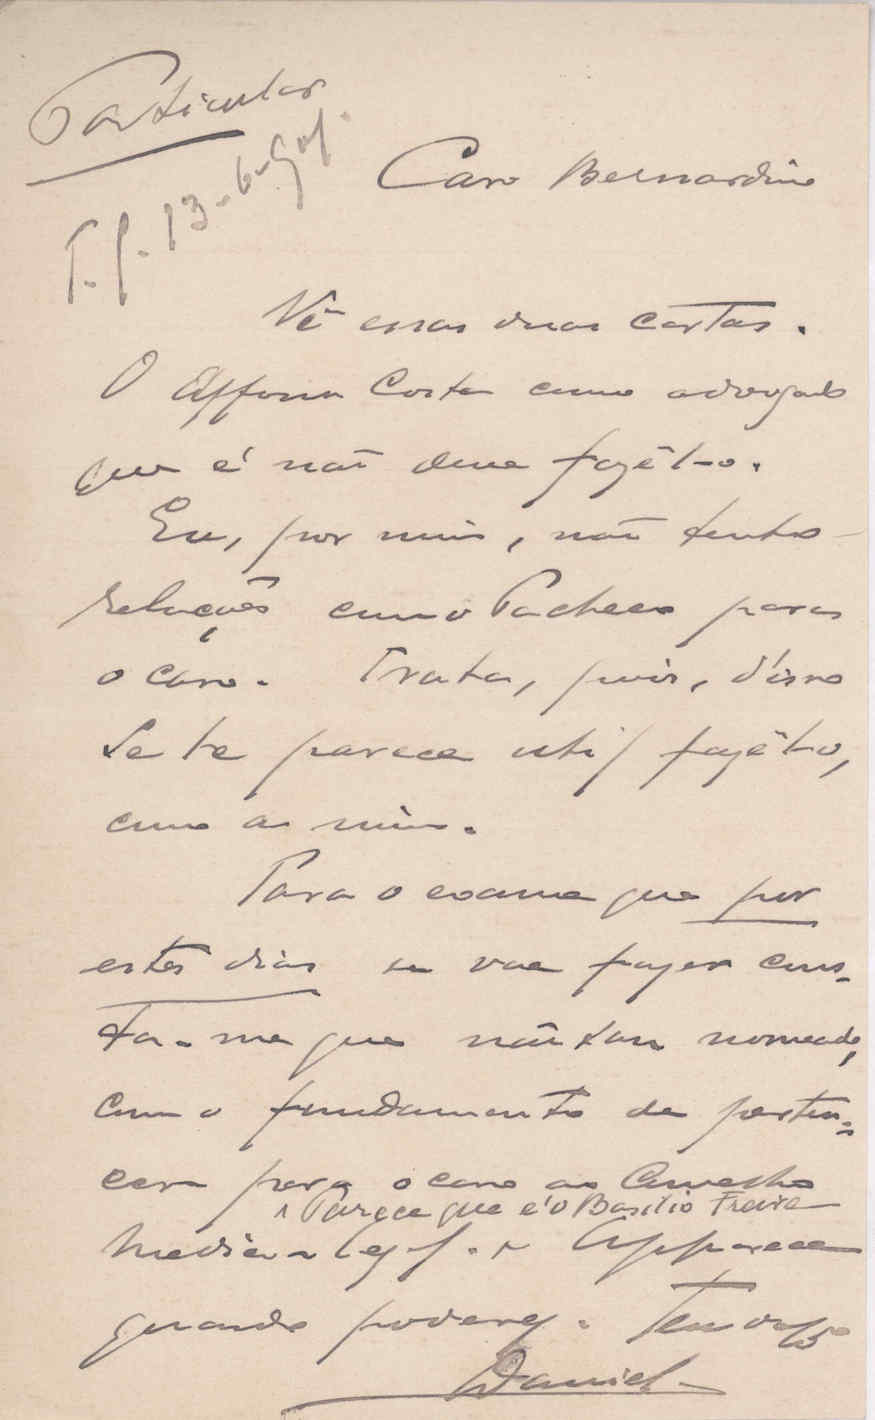 Particular
T. f. 13-6-901.
Caro Bernardino
Vê essas duas cartas.
O Affonso Costa como advogado
que é não deve fazêl-o.
Eu, por mim, não tenho
relações com o Pacheco para
o caso. Trata, pois, d'isso
se te parece util fazêl-o,
como a mim.
Para o exame que por
estes dias se vae fazer cons-
ta-me que não sou nomeado,
com o fundamento de perten-
cer para o caso ao Conselho
Parece que é o Basilio Freire
medico-legal. Apparece
quando poderes. Teu
Daniel